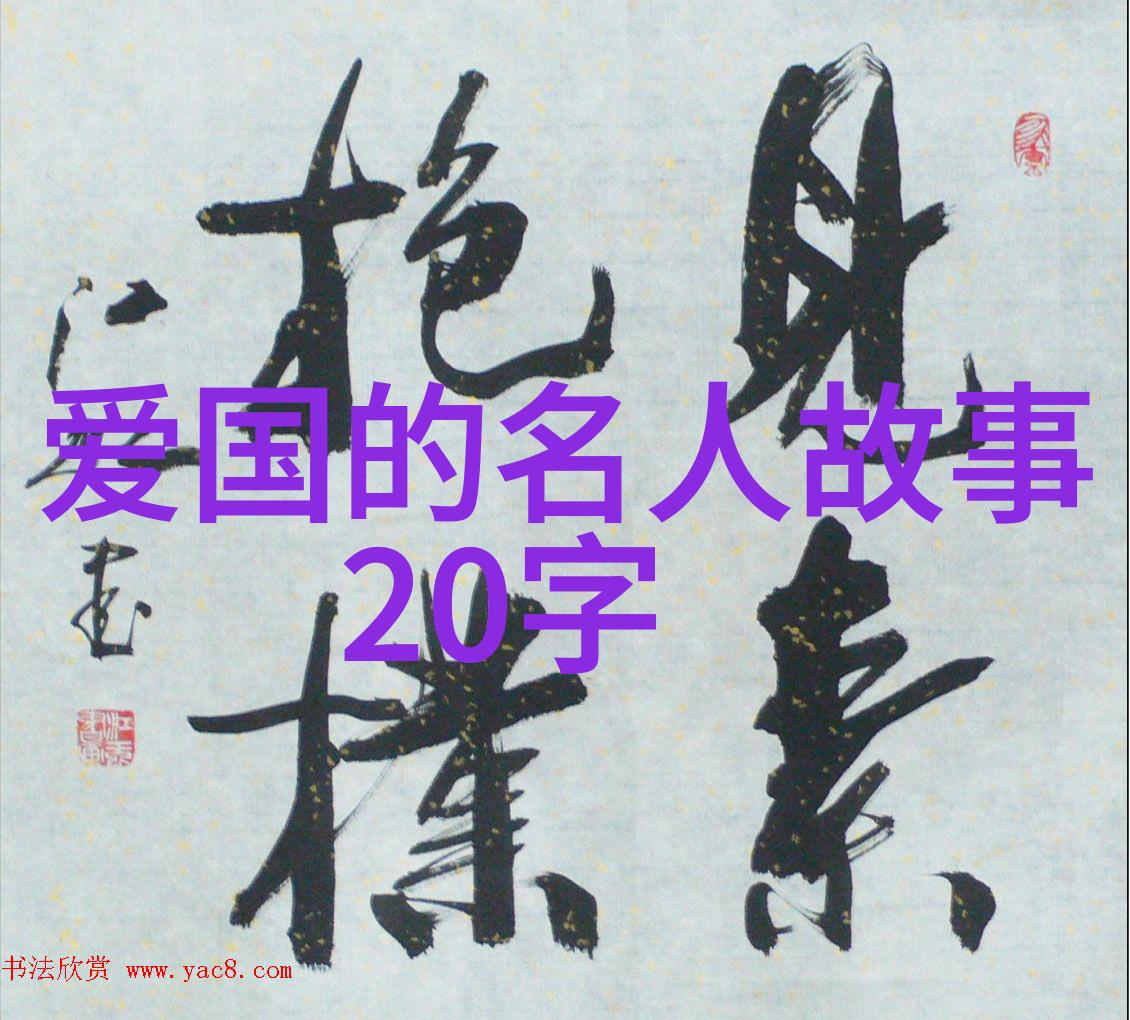 爱国的名人故事
20字
見素
抱樸
江
书法欣赏 www.yac8.com